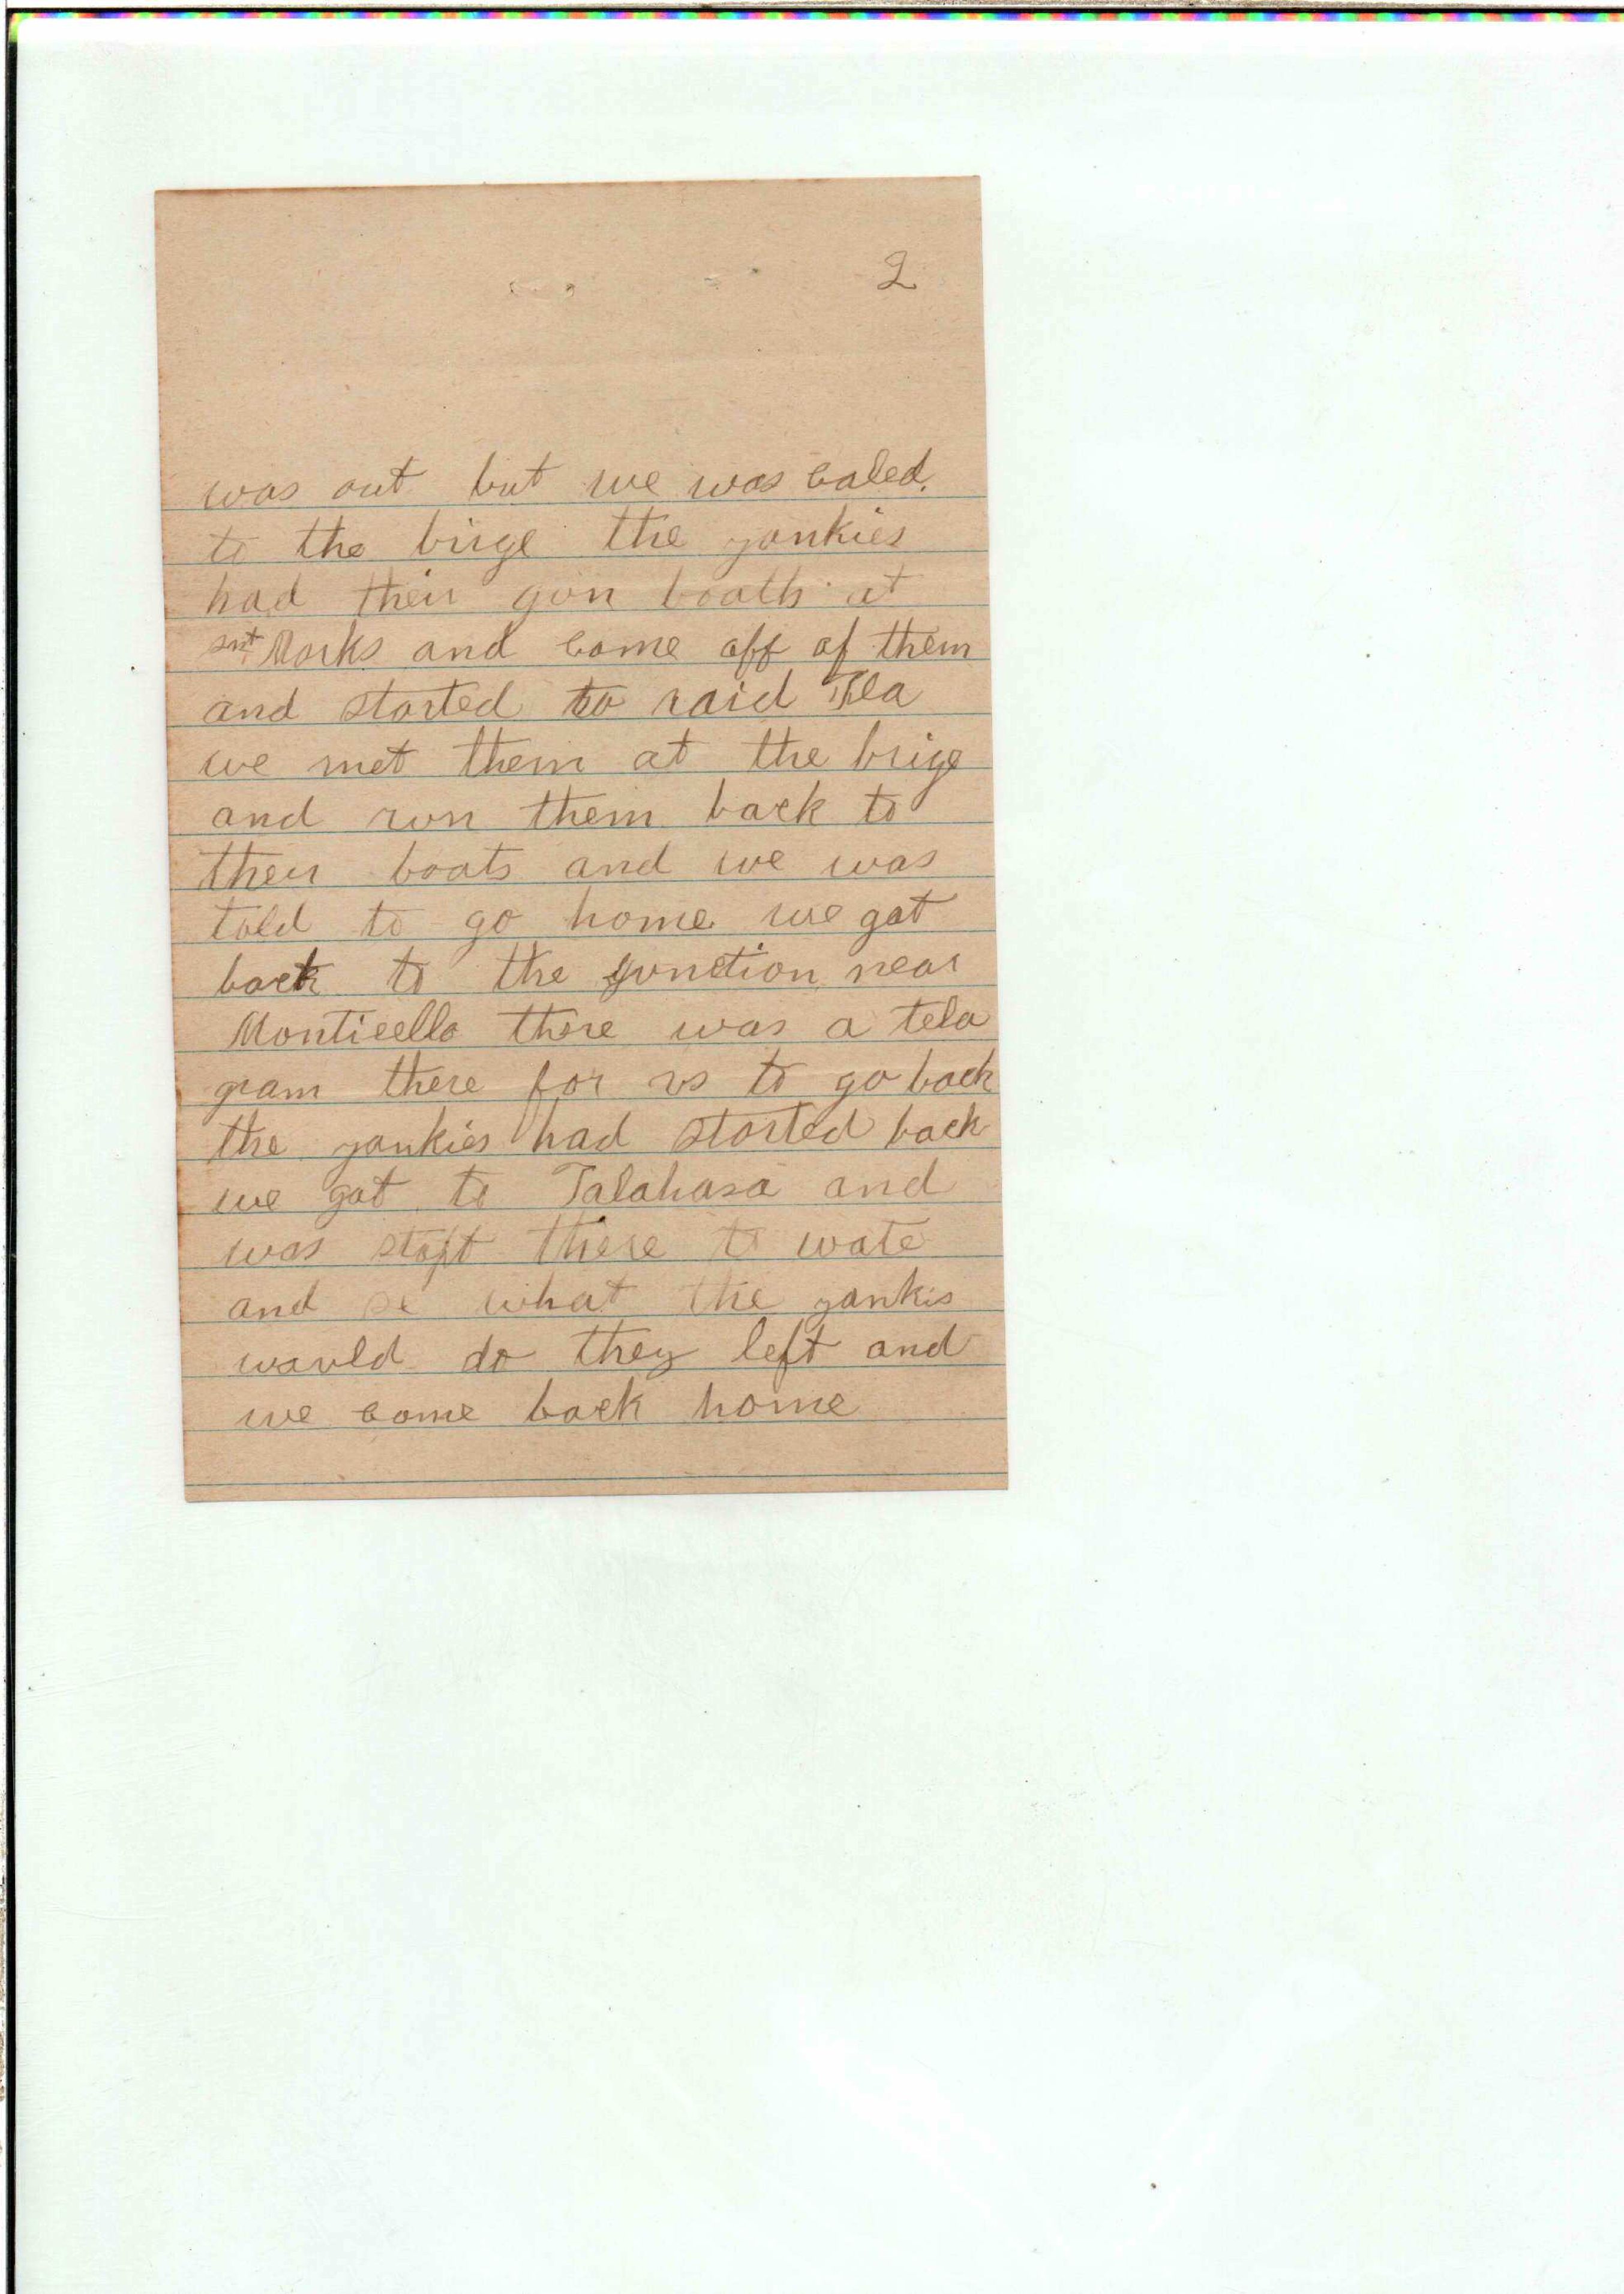 2
was out but we was caled
to the birge the yankies
had their gun boats at
snt Marks and came off of them
and started to raid Fla
we met them at the brige
and run them back to
their boats and we was
told to go home we got
back to the junction near
Monticello there was a tela
gram there for us to go back
the yankies had started back
we got to Talahasa and
was stopt there to wate
and se what the yankis
would do they left and
we came back home